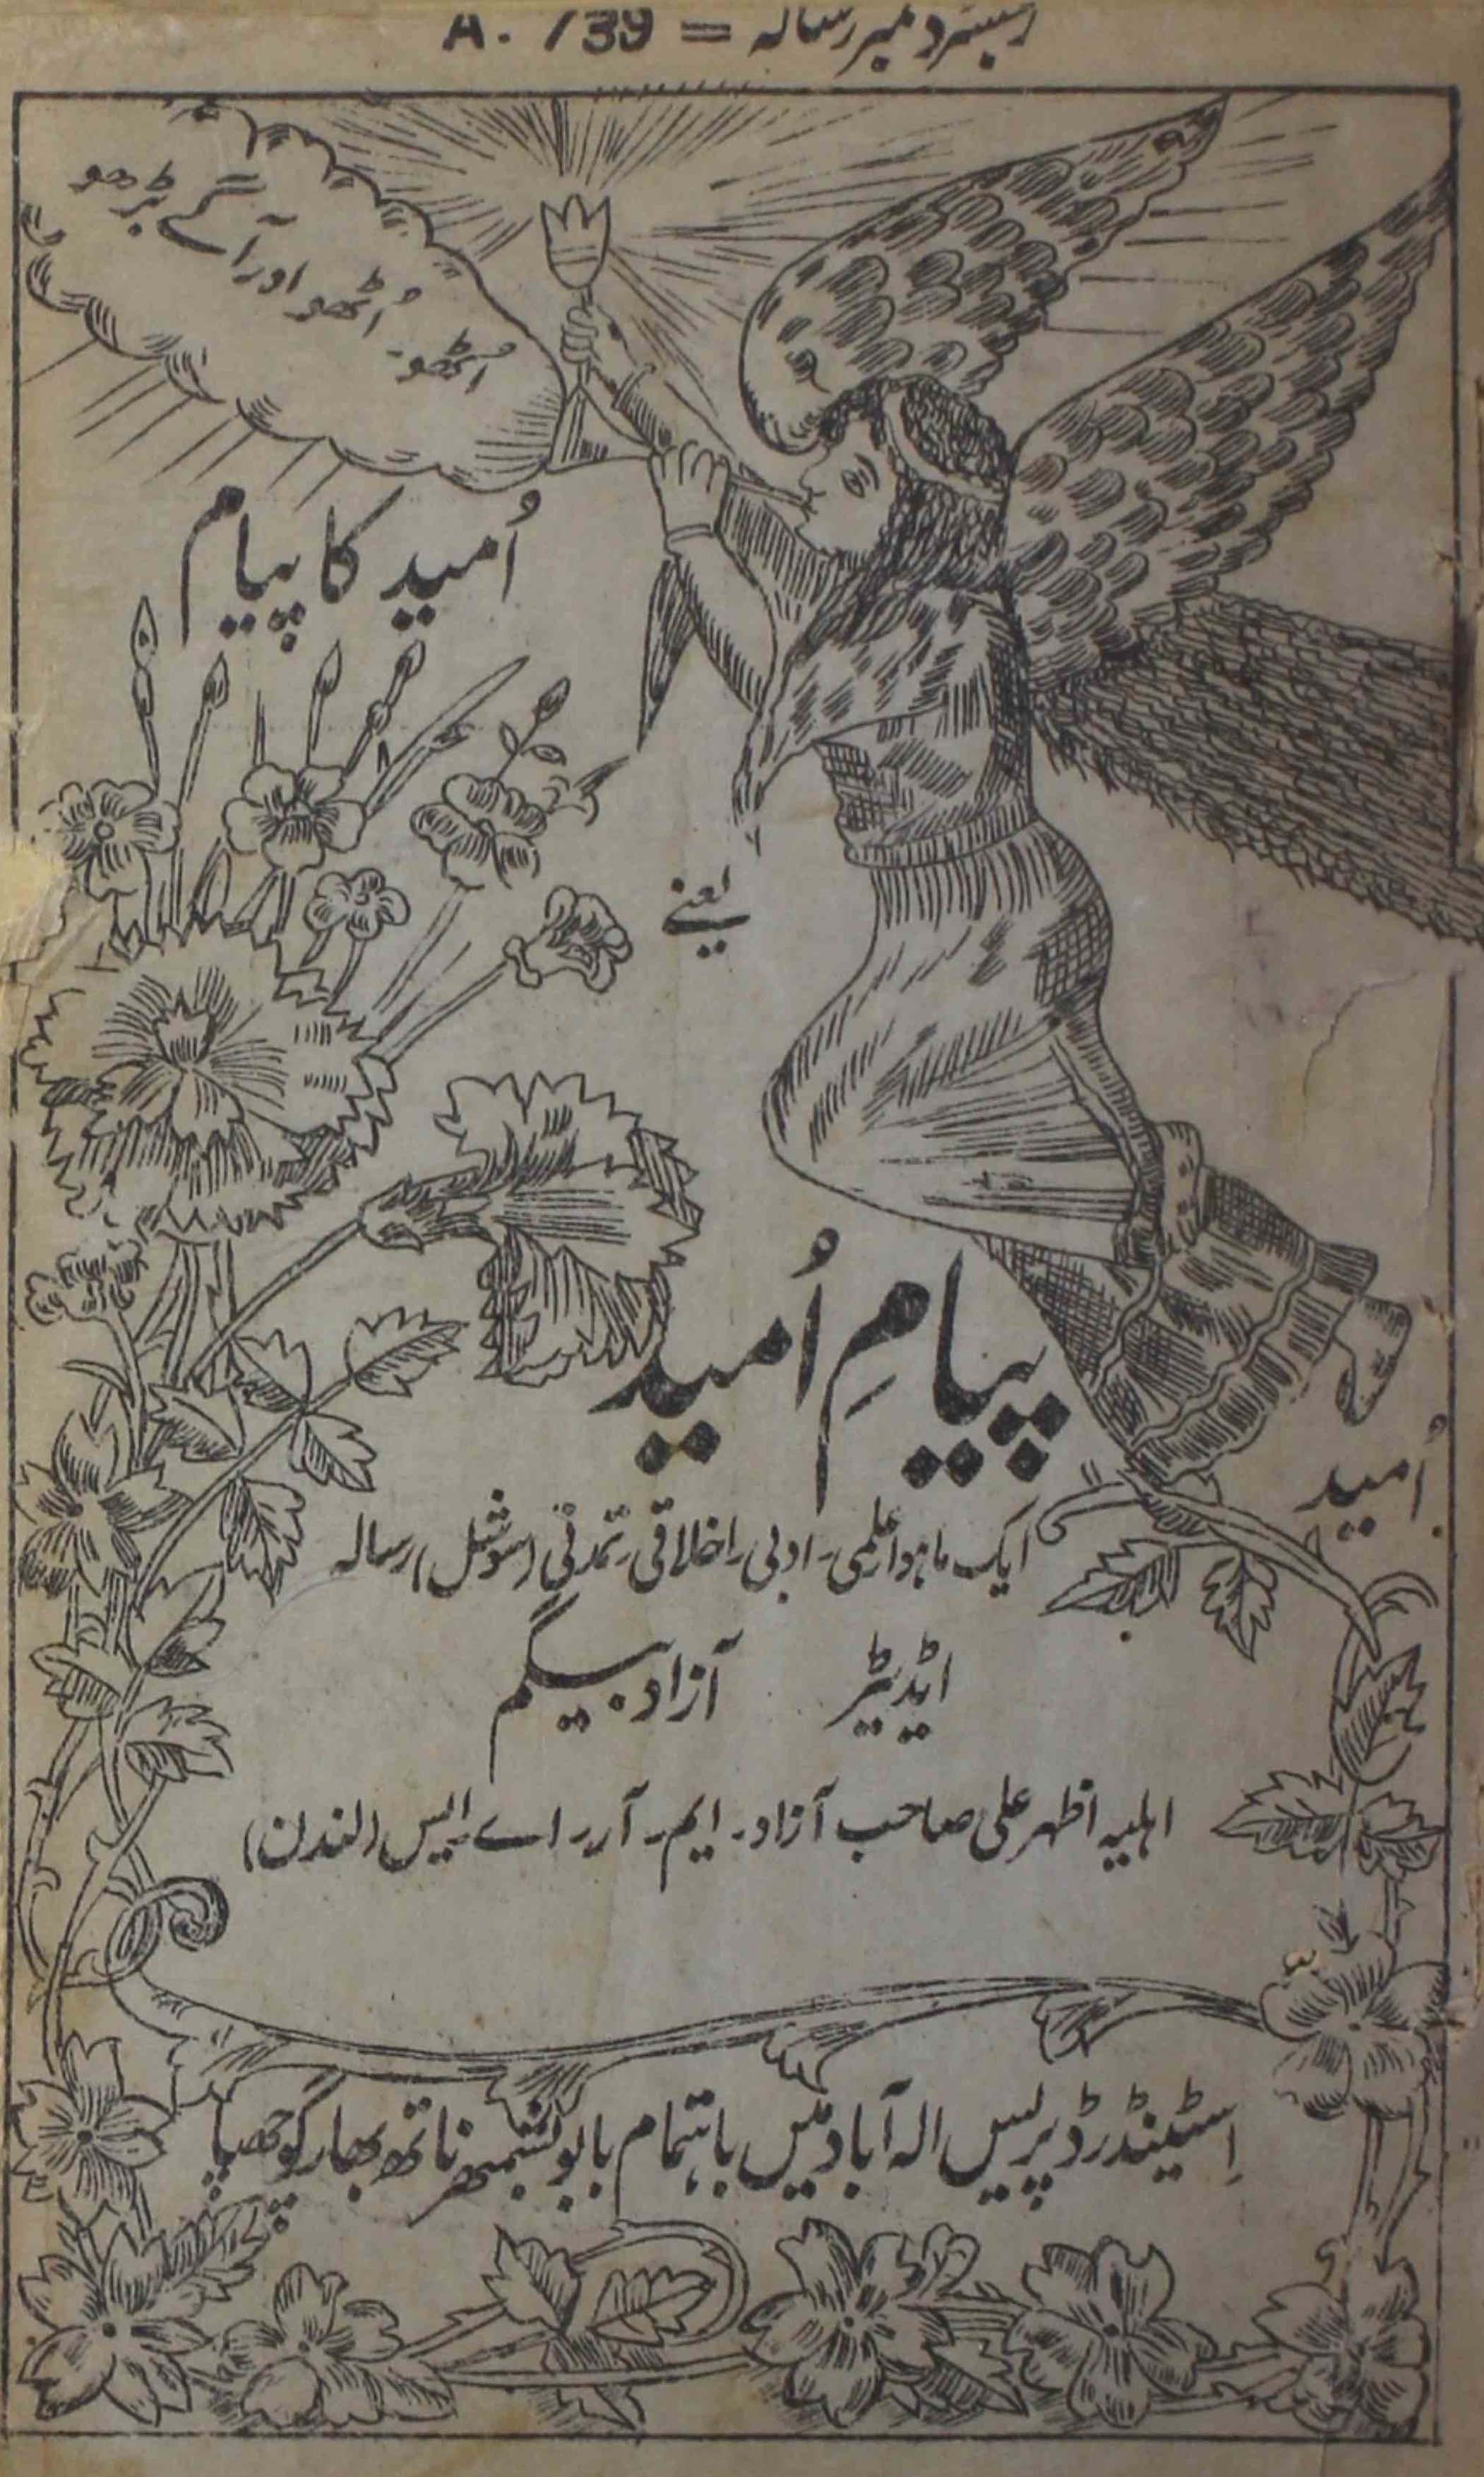 رجسٹرڈ نمبر رسالہ = A. 739
اُٹھو۔ اُٹھو اور آگے بڑھو
اُمید کا پیام
یعنے
پیامِ اُمید
اُمید
ایک ماہوار علمی۔ ادبی۔ اخلاقی۔ تمدنی (سوشل) رسالہ
ایڈیٹر آزاد بیگم
اہلیہ اظہر علی صاحب آزاد۔ ایم۔ آر۔ اے۔ ایس (لندن)
اِسٹینڈرڈ پریس الہ آباد میں باہتمام بابو بشمبھر ناتھ بھارگو چھپا